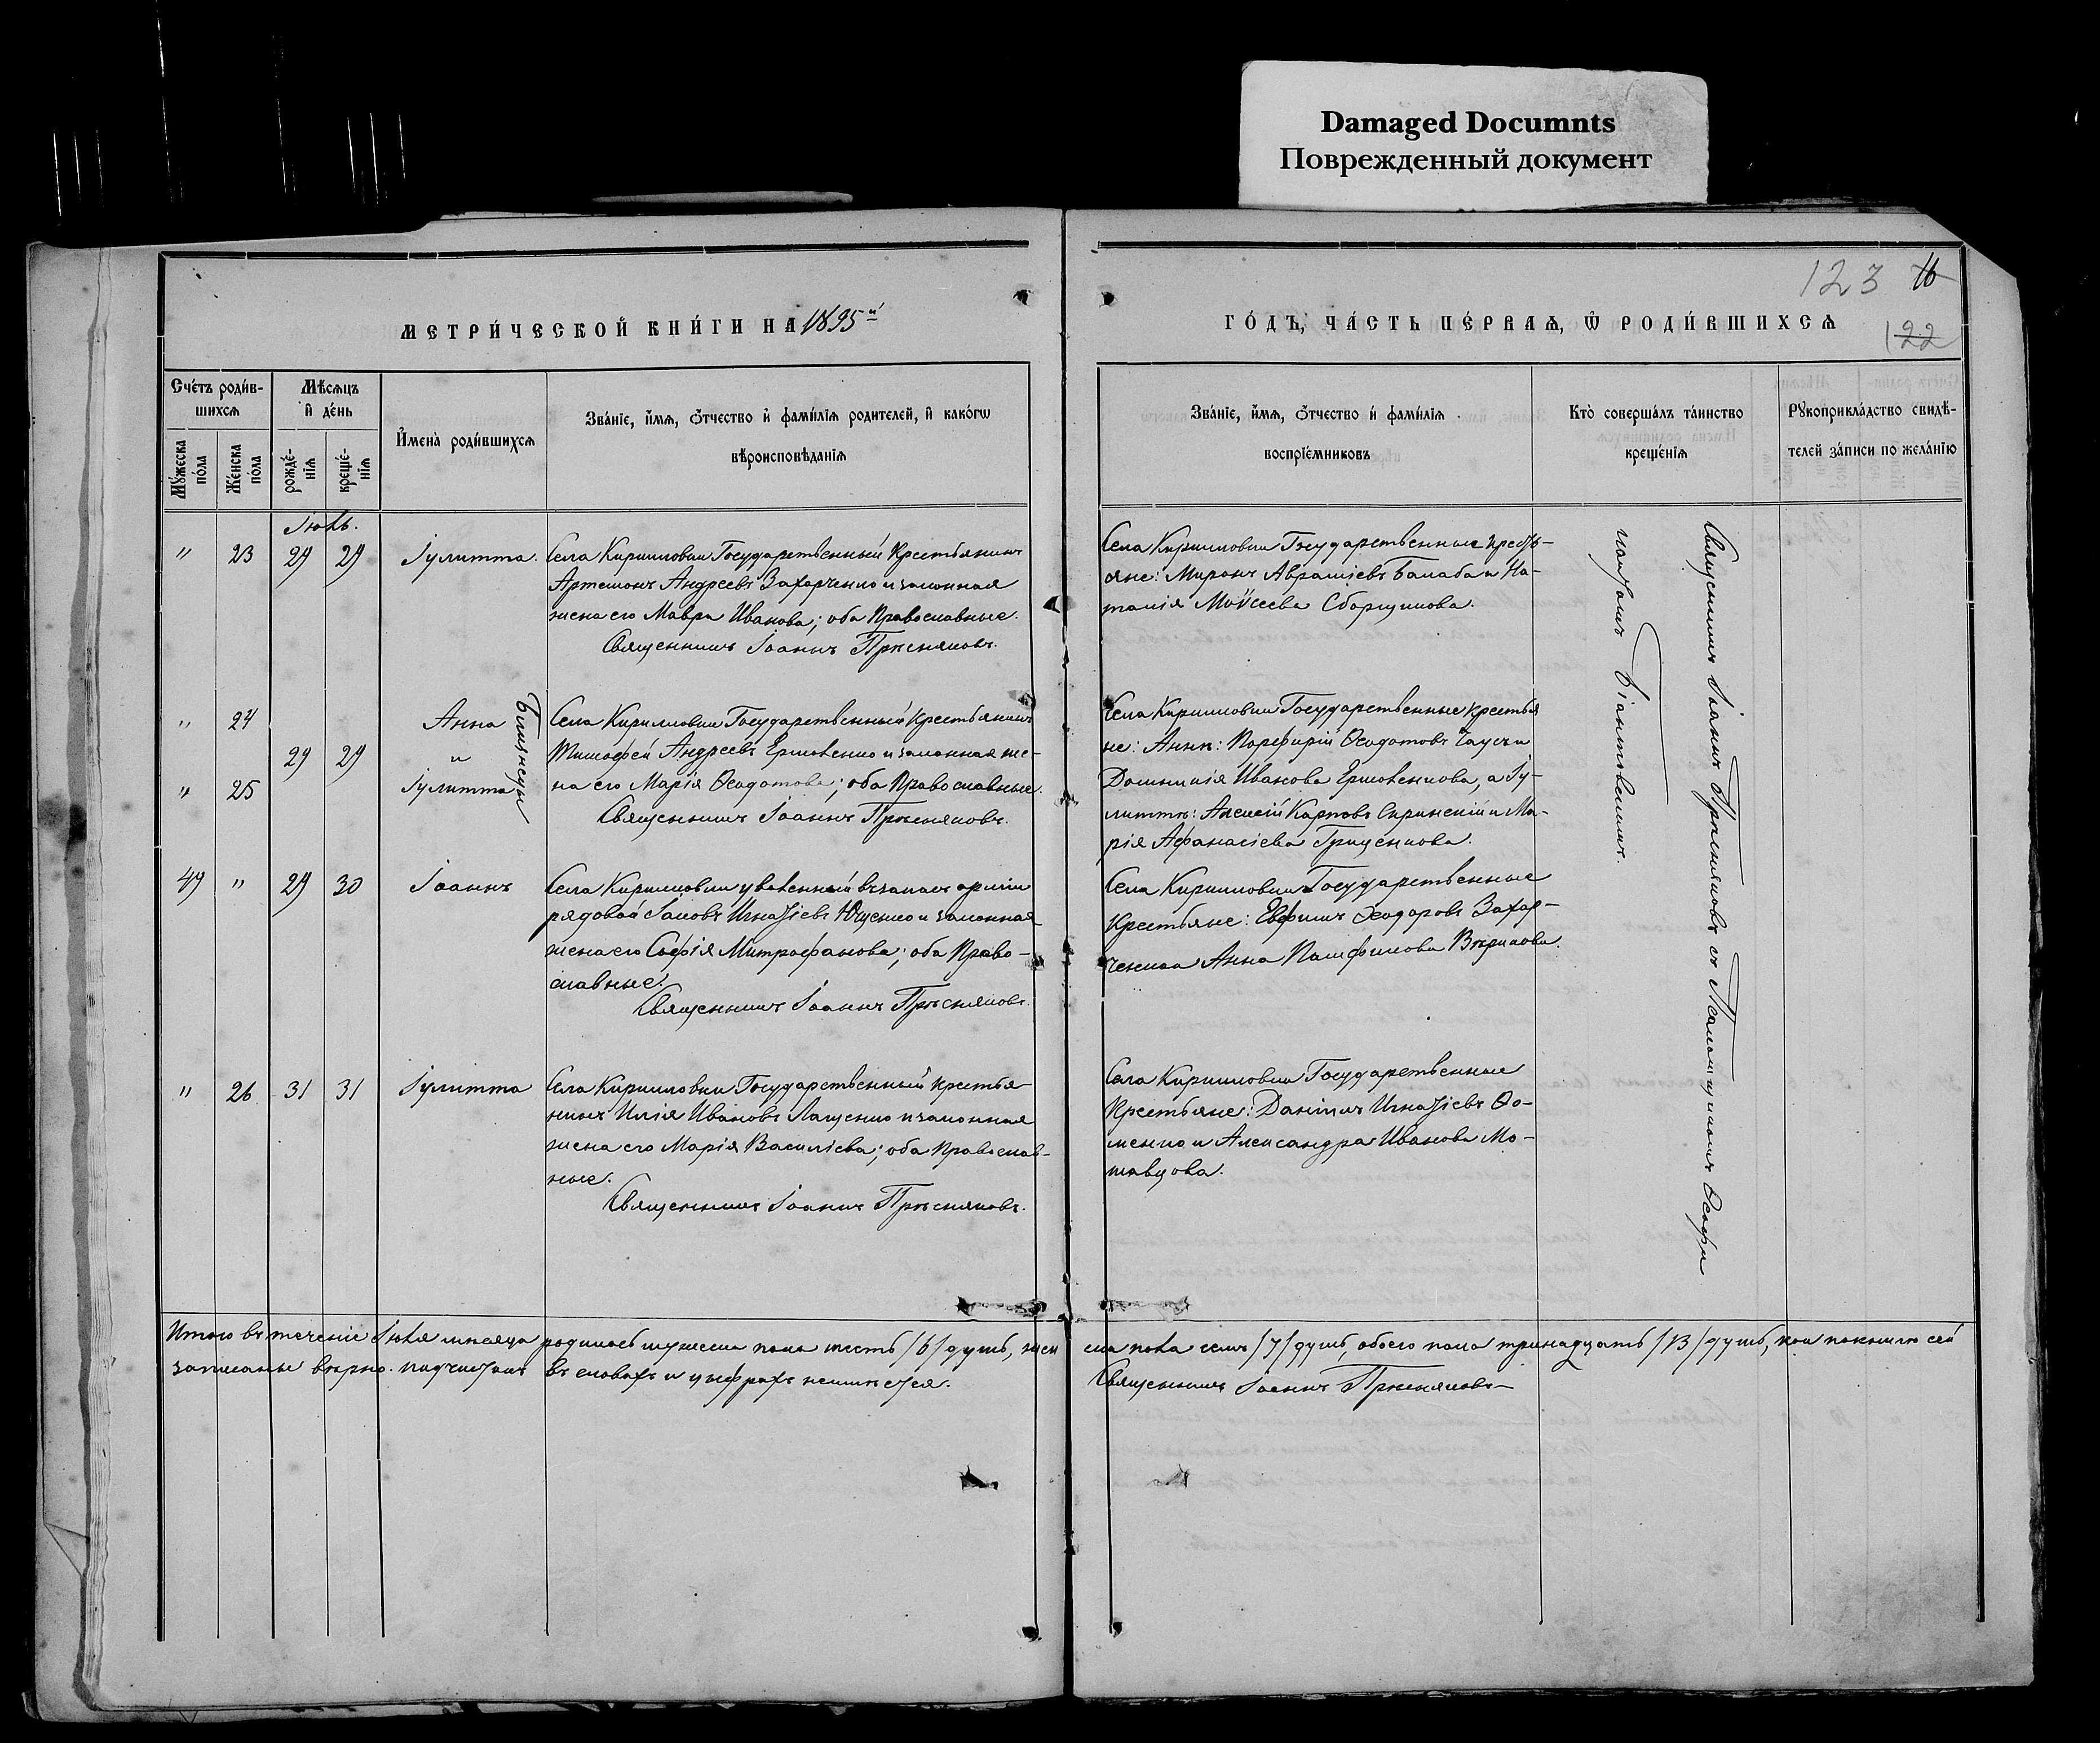 Damaged Documnts
Поврежденный документ
123 16
122
МЕТРИ́ЧЕСКОЙ КНИ́ГИ НА 1895й
ГО́ДЪ, ЧА́СТЬ ПЕ́РВАѦ, Ѿ РОДИ́ВШИХСѦ
Сче́тъ роди́в-
шихсѧ
Мꙋ́жеска по́ла
Же́нска по́ла
Мѣ́сѧцъ
и҆ де́нь
рожде́-
нїѧ
креще́-
нїѧ
И҆мена̀ роди́вшихсѧ
Зва́нїе, и҆́мѧ, ѻ҆́тчество и҆ фамилїѧ родителей, и҆ како́гѡ
вѣроисповѣ́данїѧ
Зва́нїе, и҆́мѧ, ѻ҆́тчество и҆ фами́лїѧ
воспрїе́мниковъ
Кто̀ соверша́лъ та́инство
креще́нїѧ
Рꙋкоприкла́дство свидѣ́-
телей за́писи по жела́нїю
Іюль.
" 23 29 29 Іулитта.
Села Кирилловки Государственный Крестьянинъ
Артемонъ Андреевъ Захарченко и законная
жена его Мавра Иванова; оба Православные.
Священникъ Іоаннъ Прѣсняковъ.
Села Кирилловки Государственные кресть-
яне: Миронъ Авраміевъ Балаба и На-
талія Моѵсеева Сборщикова.
" 24 Анна
29 29 и
" 25 Іулитта
Близнецы
Села Кирилловки Государственный Крестьянинъ
Тимофей Андреевъ Ермоленко и законная же-
на его Марія Ѳеодотова; оба Православные.
Священникъ Іоаннъ Прѣсняковъ.
Села Кирилловки Государственные крестья
не: Аннѣ: Порфирій Ѳеодотовъ Гаусъ и
Домникія Иванова Ермоленкова, а Іу-
литтѣ: Алексій Карповъ Скринскій и Ма-
рія Афанасіева Гриценкова.
49 " 29 30 Іоаннъ
Села Кирилловки уволенный въ запасъ арміи
рядовой Іаковъ Игнатіевъ Ющенко и законная
жена его Софія Митрофанова; оба Право-
славные.
Священникъ Іоаннъ Прѣсняковъ.
Села Кирилловки Государственные
Крестьяне: Евфимъ Ѳеодоровъ Захар-
ченко и Анна Памфилова Вѣрикова.
" 26 31 31 Іулитта
Села Кирилловки Государственный крестья-
нинъ Илія Ивановъ Лащенко и законная
жена его Марія Василіева; оба Православ-
ные.
Священникъ Іоаннъ Прѣсняковъ.
Села Кирилловки Государственные
Крестьяне: Даніилъ Игнатіевъ Ѳо-
менко и Александра Иванова Мо-
шавцова.
Священникъ Іоаннъ Прѣсняковъ съ Псаломщикомъ Ѳеофи
лактомъ Біантовскимъ.
Итого въ теченіе Іюля мѣсяца родилось мужеска пола шесть /6/ душъ, жен ска пола семь /7/ душъ, обоего пола тринадцать /13/ душъ, кои по книгѣ сей
записаны вѣрно. подчистокъ въ словахъ и цифрахъ не имѣется. Священникъ Іоаннъ Прѣсняковъ